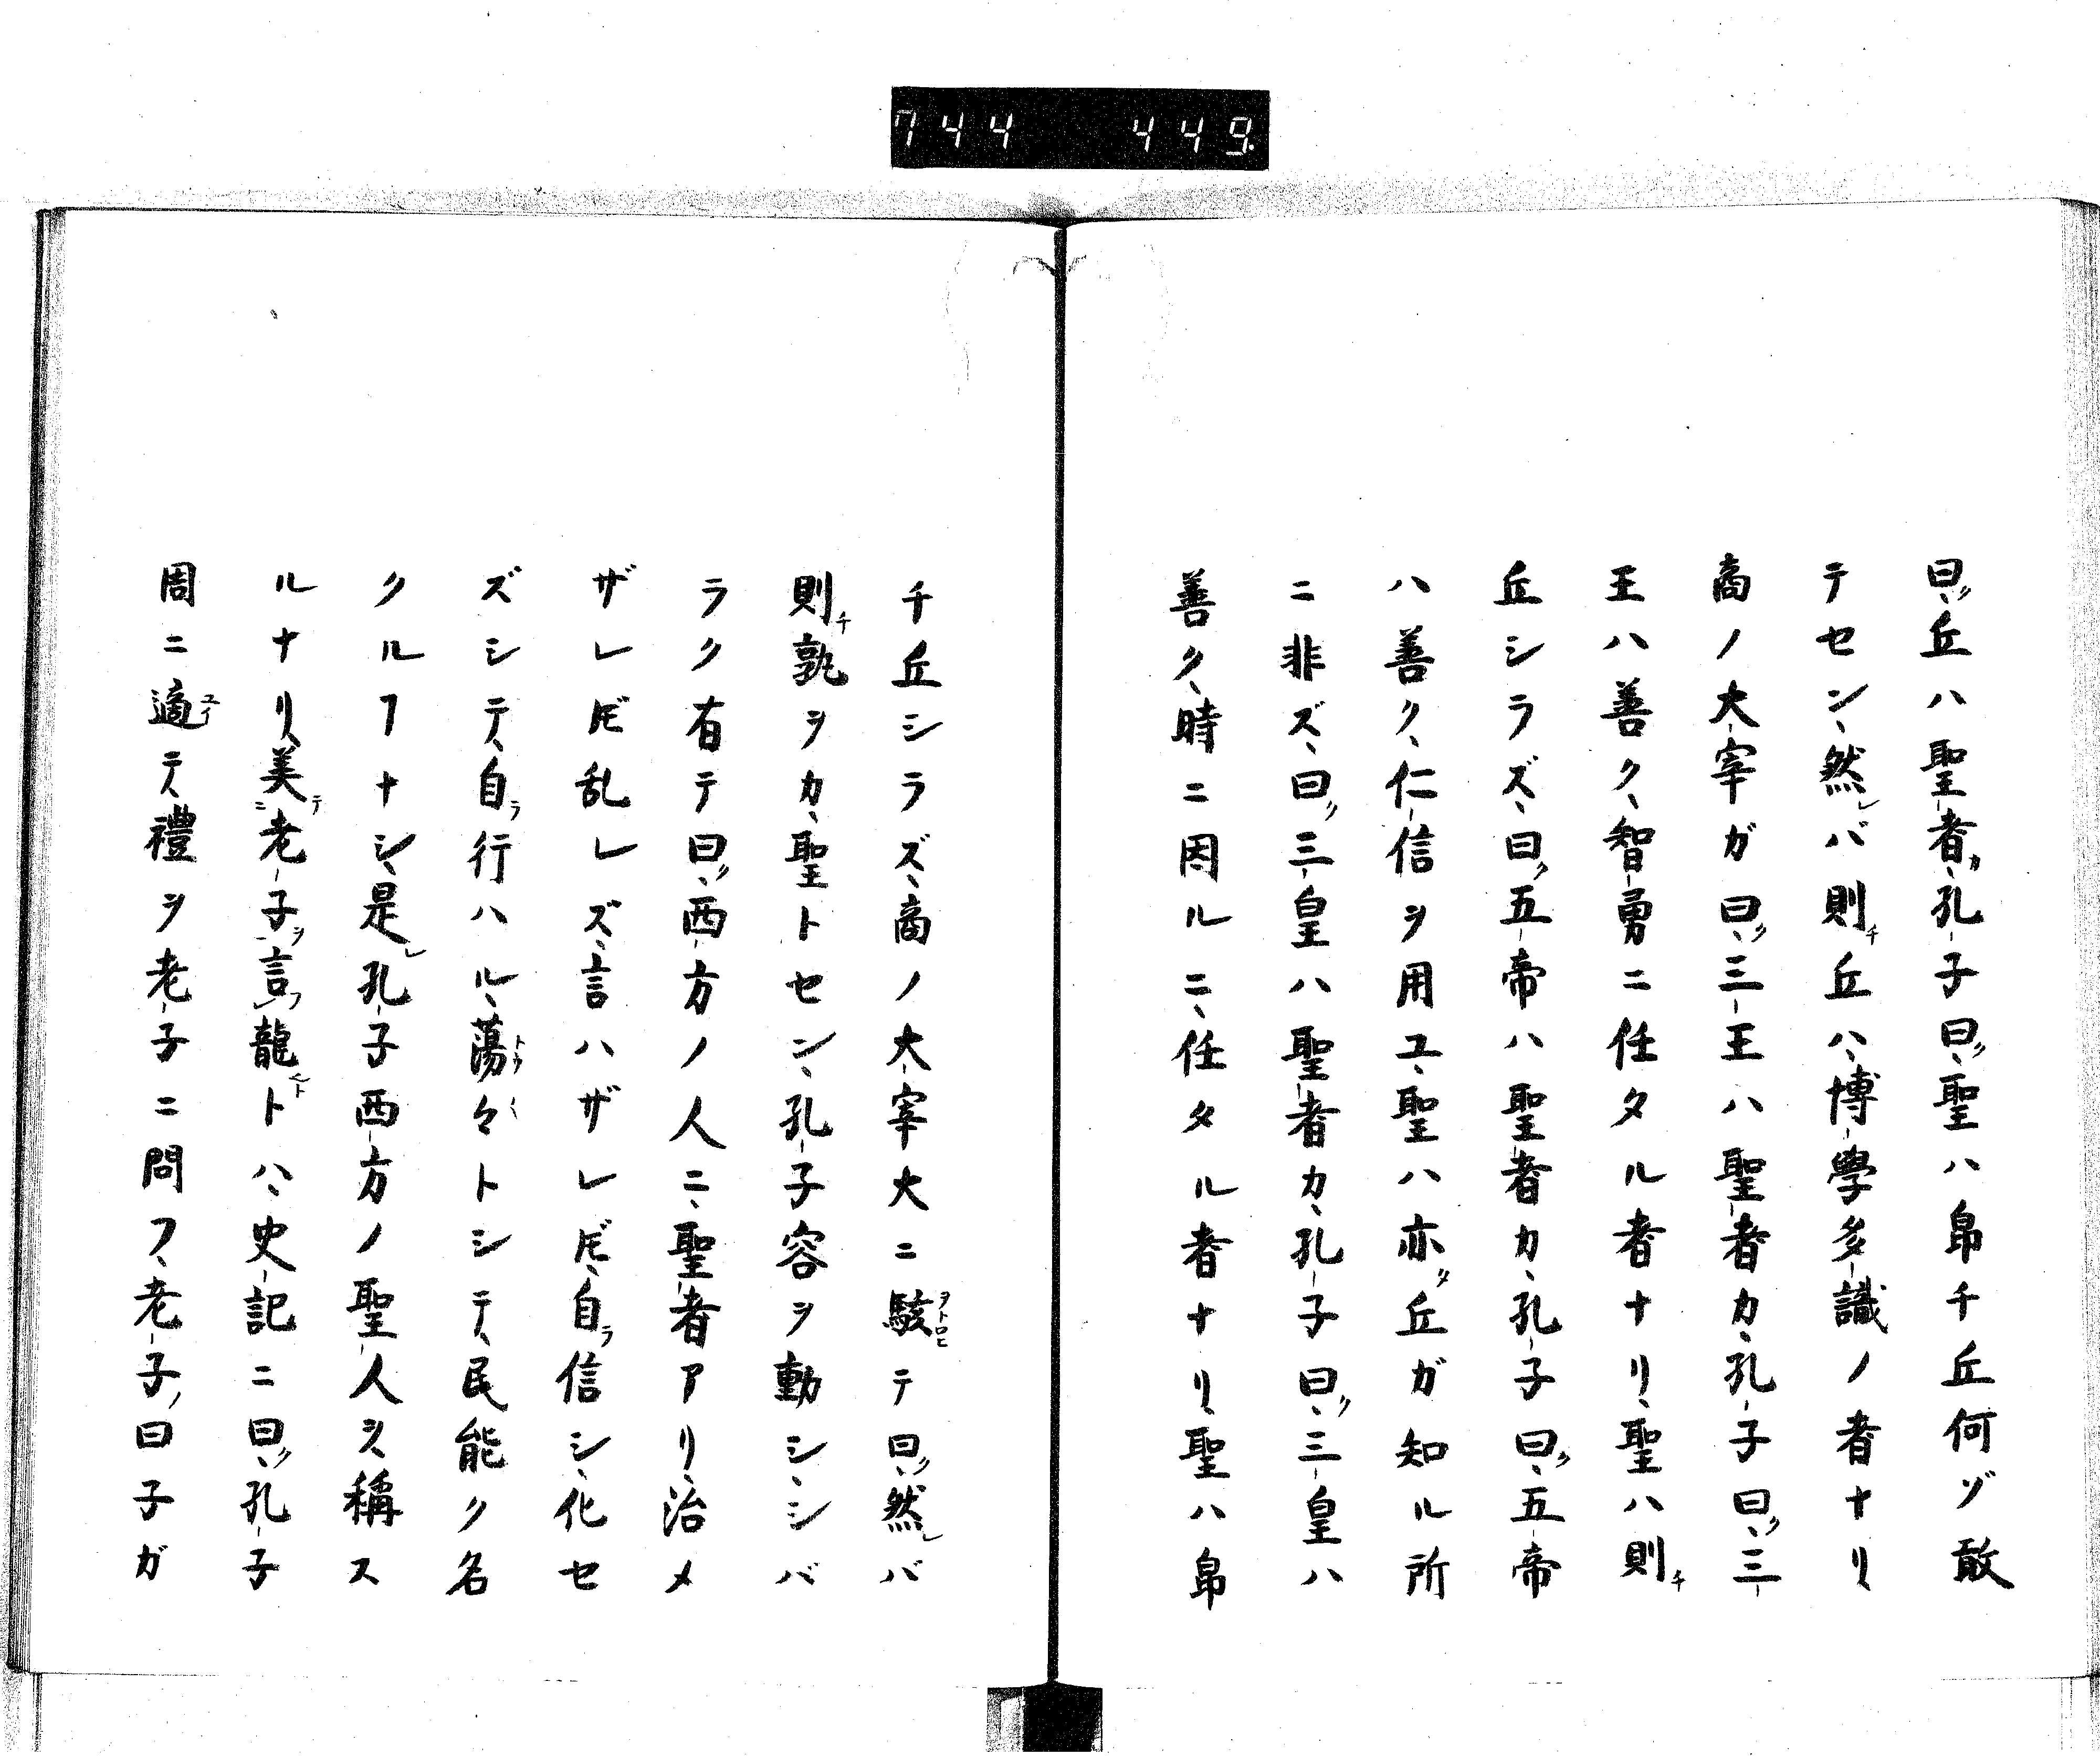 744 449
曰ク、丘ハ聖者カ、孔子曰ク、聖ハ帛チ丘何ゾ敢
テセン、然レバ則チ丘ハ、博學多識ノ者ナリ、
商ノ大宰ガ曰ク、三王ハ聖者カ、孔子曰ク、三
王ハ善ク、智勇ニ任タル者ナリ、聖ハ則チ
丘シラズ、曰ク、五帝ハ聖者カ、孔子曰ク、五帝
ハ善ク、仁信ヲ用ユ、聖ハ亦タ丘ガ知ル所
ニ非ズ、曰ク、三皇ハ聖者カ、孔子曰ク、三皇ハ
善ク、時ニ因ルニ、任タル者ナリ、聖ハ帛
チ丘シラズ、商ノ大宰大ニ駭ヲトロヒテ曰ク、然レバ
則チ孰ヲカ、聖トセン、孔子容ヲ動シ、シバ
ラク有テ曰ク、西方ノ人ニ、聖者アリ、治メ
ザレ𪜈乱レズ、言ハザレ𪜈、自ラ信シ、化セ
ズシテ、自ラ行ハル、蕩トウ々〱トシテ、民能ク名
クルヿナシ、是レ孔子西方ノ聖人ヲ、稱ス
ルナリ、美ニ老子ヲ言フテ龍ト、ハ、史記ニ曰ク、孔子
周ニ適ユイテ、禮ヲ老子ニ問フ、老子ノ曰子ガ